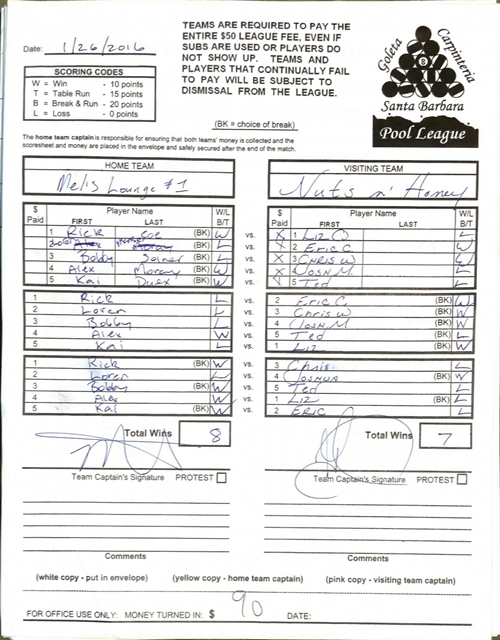 Date: 1/26/2016
SCORING CODES
W = Win - 10 points
T = Table Run - 15 points
B = Break & Run - 20 points
L = Loss - 0 points
TEAMS ARE REQUIRED TO PAY THE
ENTIRE $50 LEAGUE FEE, EVEN IF
SUBS ARE USED OR PLAYERS DO
NOT SHOW UP. TEAMS AND
PLAYERS THAT CONTINUALLY FAIL
TO PAY WILL BE SUBJECT TO
DISMISSAL FROM THE LEAGUE.
(BK = choice of break)
Goleta Carpinteria
8
Santa Barbara
Pool League
The home team captain is responsible for ensuring that both teams' money is collected and the
scoresheet and money are placed in the envelope and safely secured after the end of the match.
HOME TEAM
Mel's Lounge #1
$ Paid Player Name FIRST LAST W/L B/T
1 Rick (BK) W vs.
2 Loren L vs.
3 Bobby (BK) L vs.
4 Alex W vs.
5 Kai (BK) W vs.
1 Rick L vs.
2 Loren L vs.
3 Bobby L vs.
4 Alex W vs.
5 Kai L vs.
1 Rick (BK) W vs.
2 Loren L vs.
3 Bobby (BK) W vs.
4 Alex W vs.
5 Kai (BK) W vs.
Total Wins 8
Team Captain's Signature PROTEST
Comments
VISITING TEAM
Nuts n' Honey
$ Paid Player Name FIRST LAST W/L B/T
X 1 Liz O L
X 2 Eric C. W
X 3 Chris W
4 Josh M. L
5 Ted L
2 Eric C. (BK) W
3 Chris W (BK) W
4 Josh M (BK) W
5 Ted (BK) L
1 Liz (BK) W
3 Chris L
4 Joshua (BK) W
5 Ted L
1 Liz (BK) L
2 Eric L
Total Wins 7
Team Captain's Signature PROTEST
Comments
(white copy - put in envelope) (yellow copy - home team captain) (pink copy - visiting team captain)
FOR OFFICE USE ONLY: MONEY TURNED IN: $ 90 DATE: